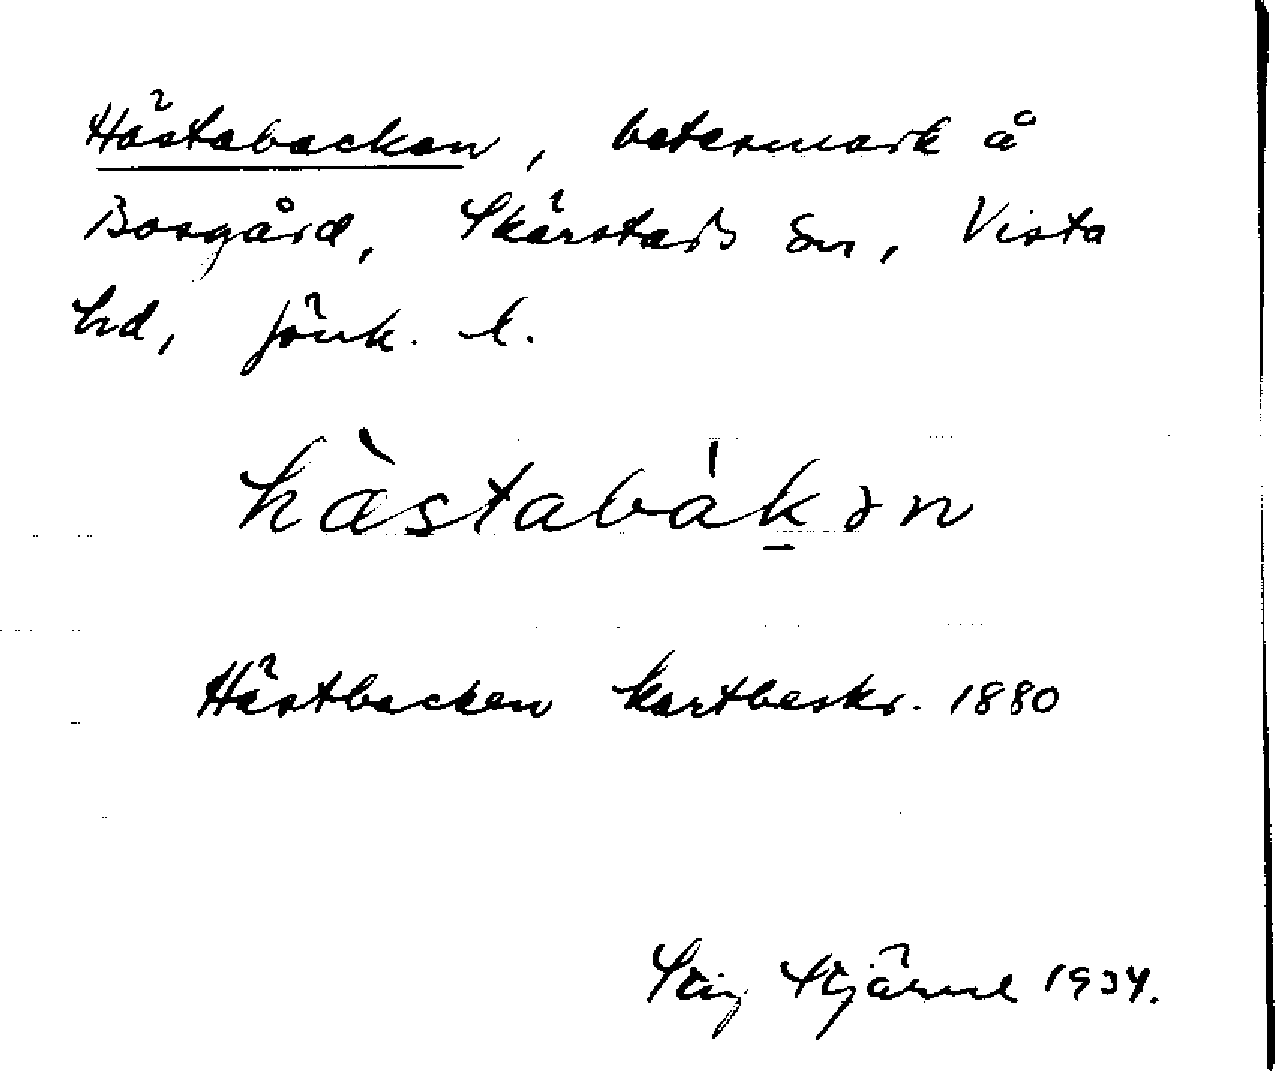 Hästabacken, betesmark å
Bosgård, Skärstads sn, Vista
hd, Jönk. l.
hæ̀stabákən
Hästbacken kartbeskr. 1880
Stig Stjärne 1934.